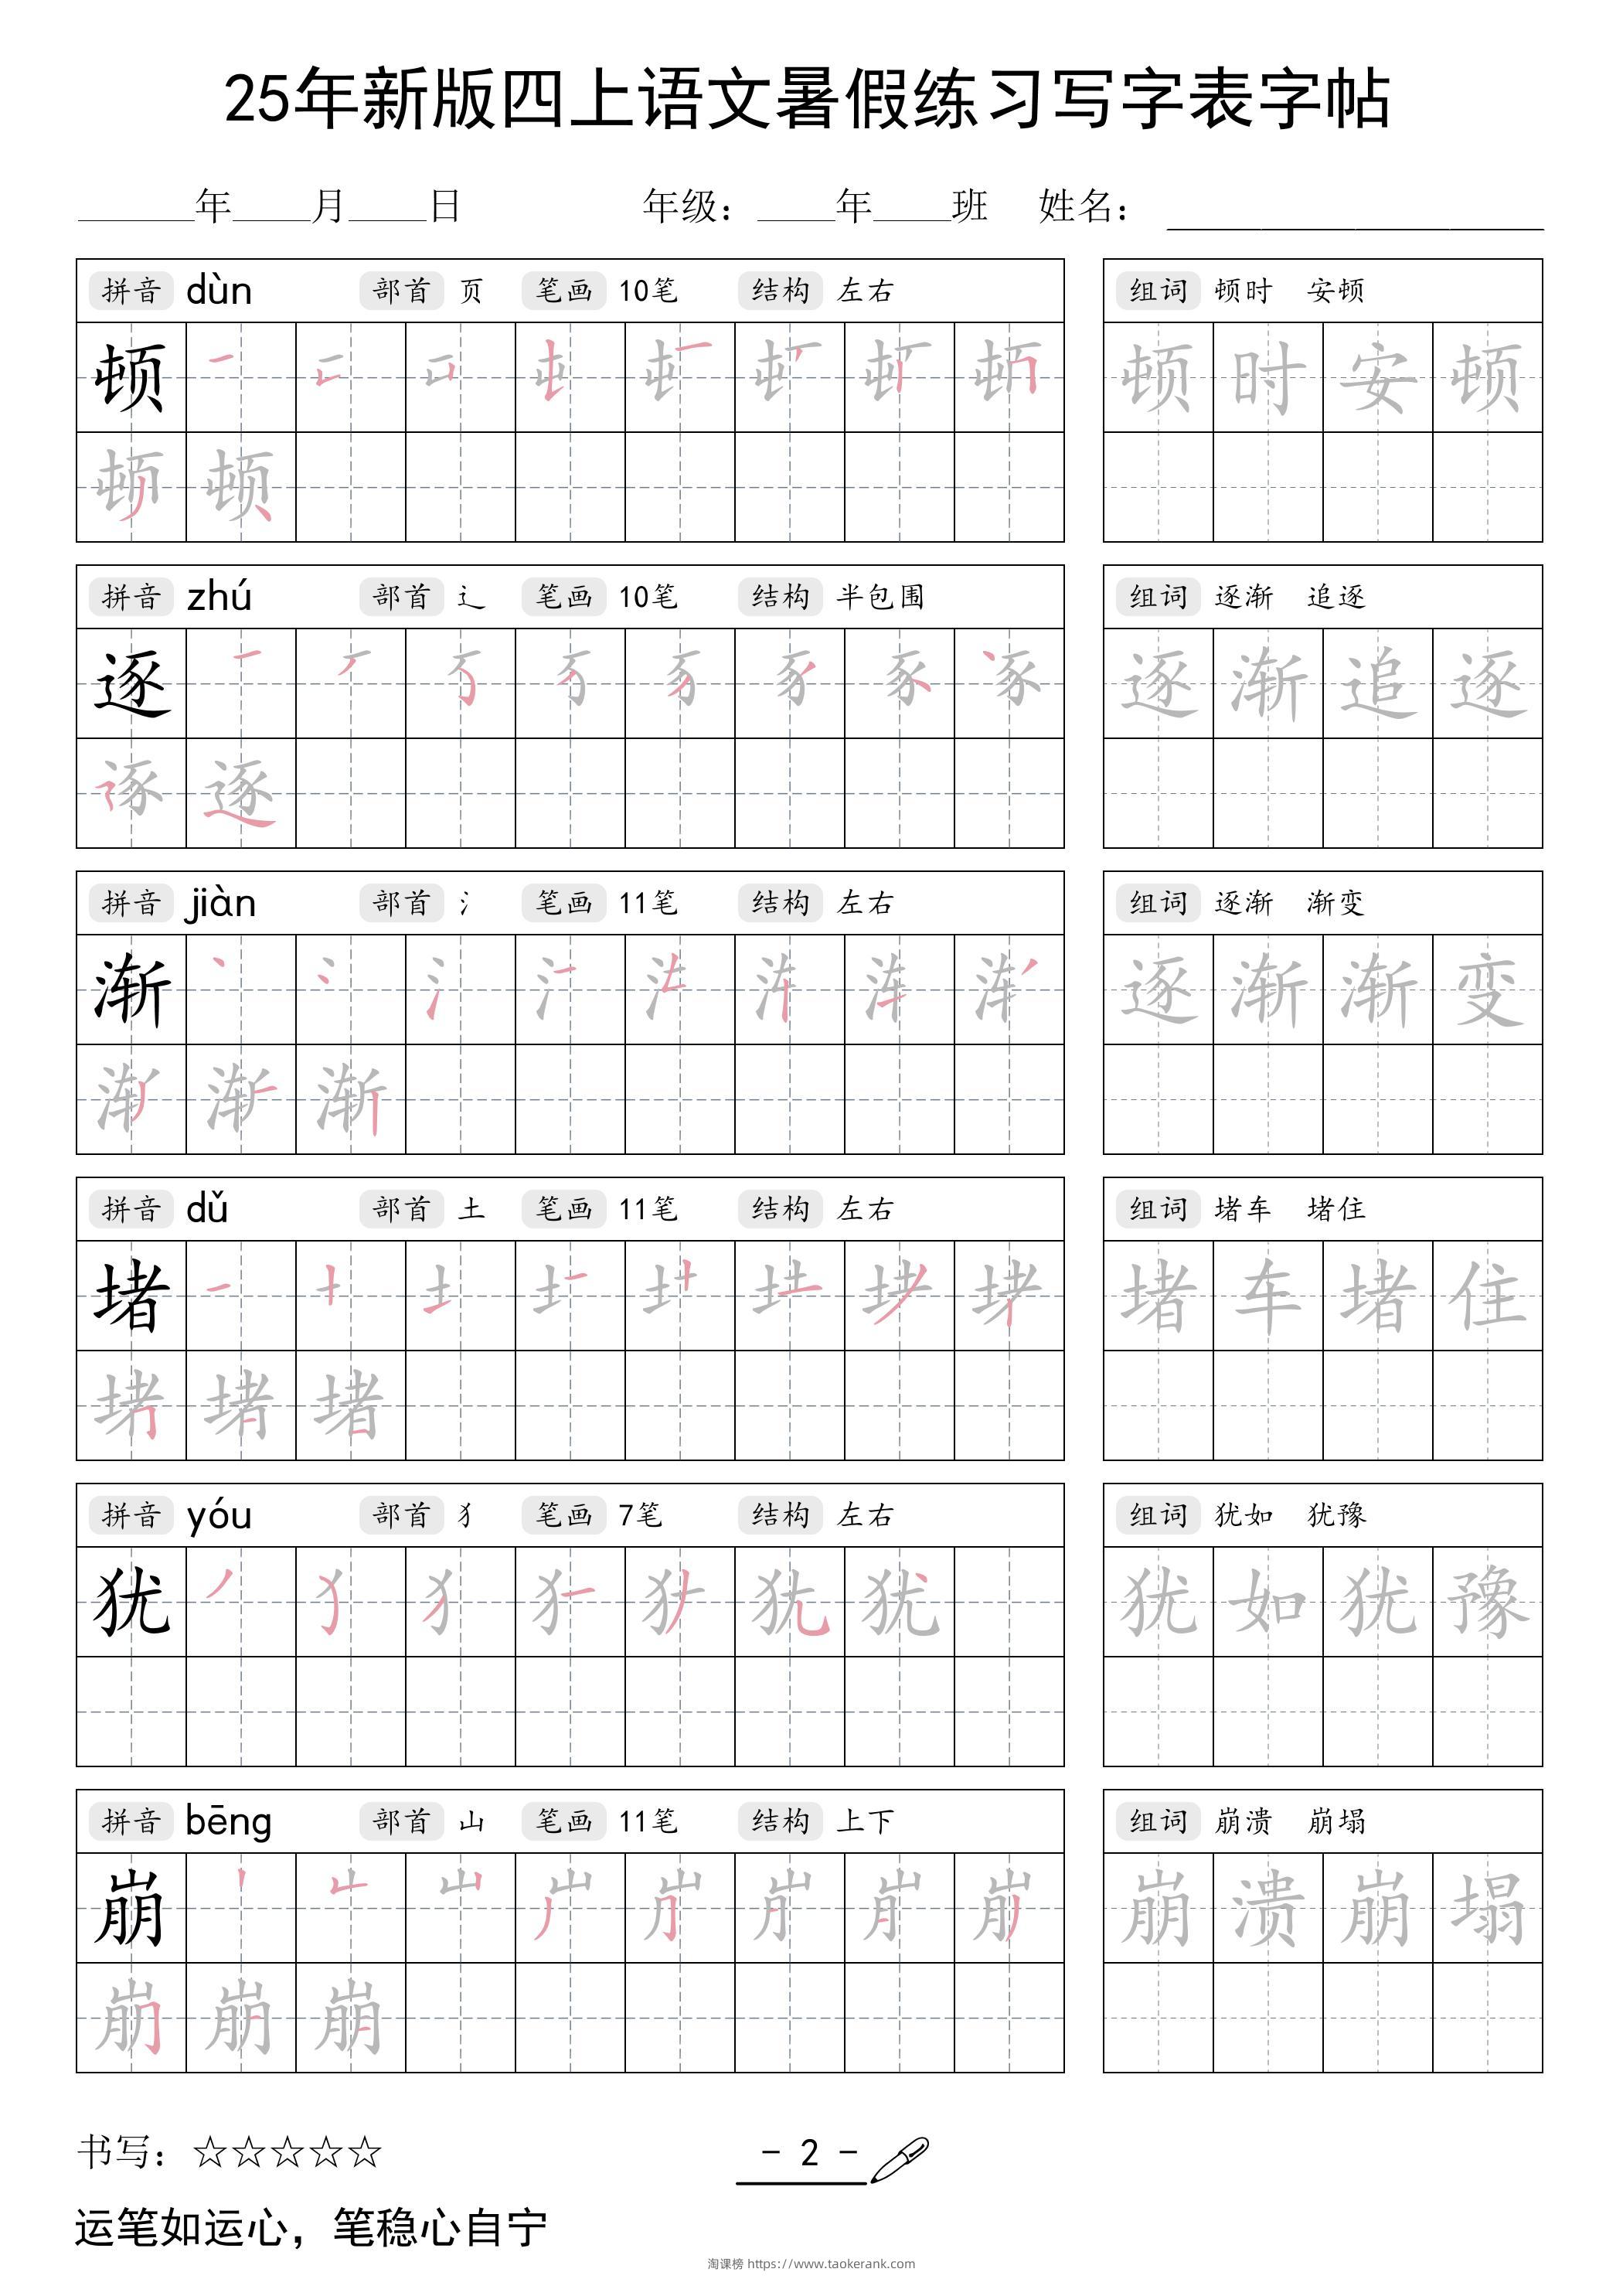 25年新版四上语文暑假练习写字表字帖
______年____月____日 年级：____年____班 姓名：____________________
拼音 dùn 部首 页 笔画 10笔 结构 左右 组词 顿时 安顿
顿 顿时安顿
顿顿
拼音 zhú 部首 辶 笔画 10笔 结构 半包围 组词 逐渐 追逐
逐 逐渐追逐
逐
拼音 jiàn 部首 氵 笔画 11笔 结构 左右 组词 逐渐 渐变
渐 逐渐渐变
渐
拼音 dǔ 部首 土 笔画 11笔 结构 左右 组词 堵车 堵住
堵 堵车堵住
堵
拼音 yóu 部首 犭 笔画 7笔 结构 左右 组词 犹如 犹豫
犹 犹 犹如犹豫
拼音 bēng 部首 山 笔画 11笔 结构 上下 组词 崩溃 崩塌
崩 崩溃崩塌
崩
书写：☆☆☆☆☆
- 2 -
运笔如运心，笔稳心自宁
淘课榜 https://www.taokerank.com